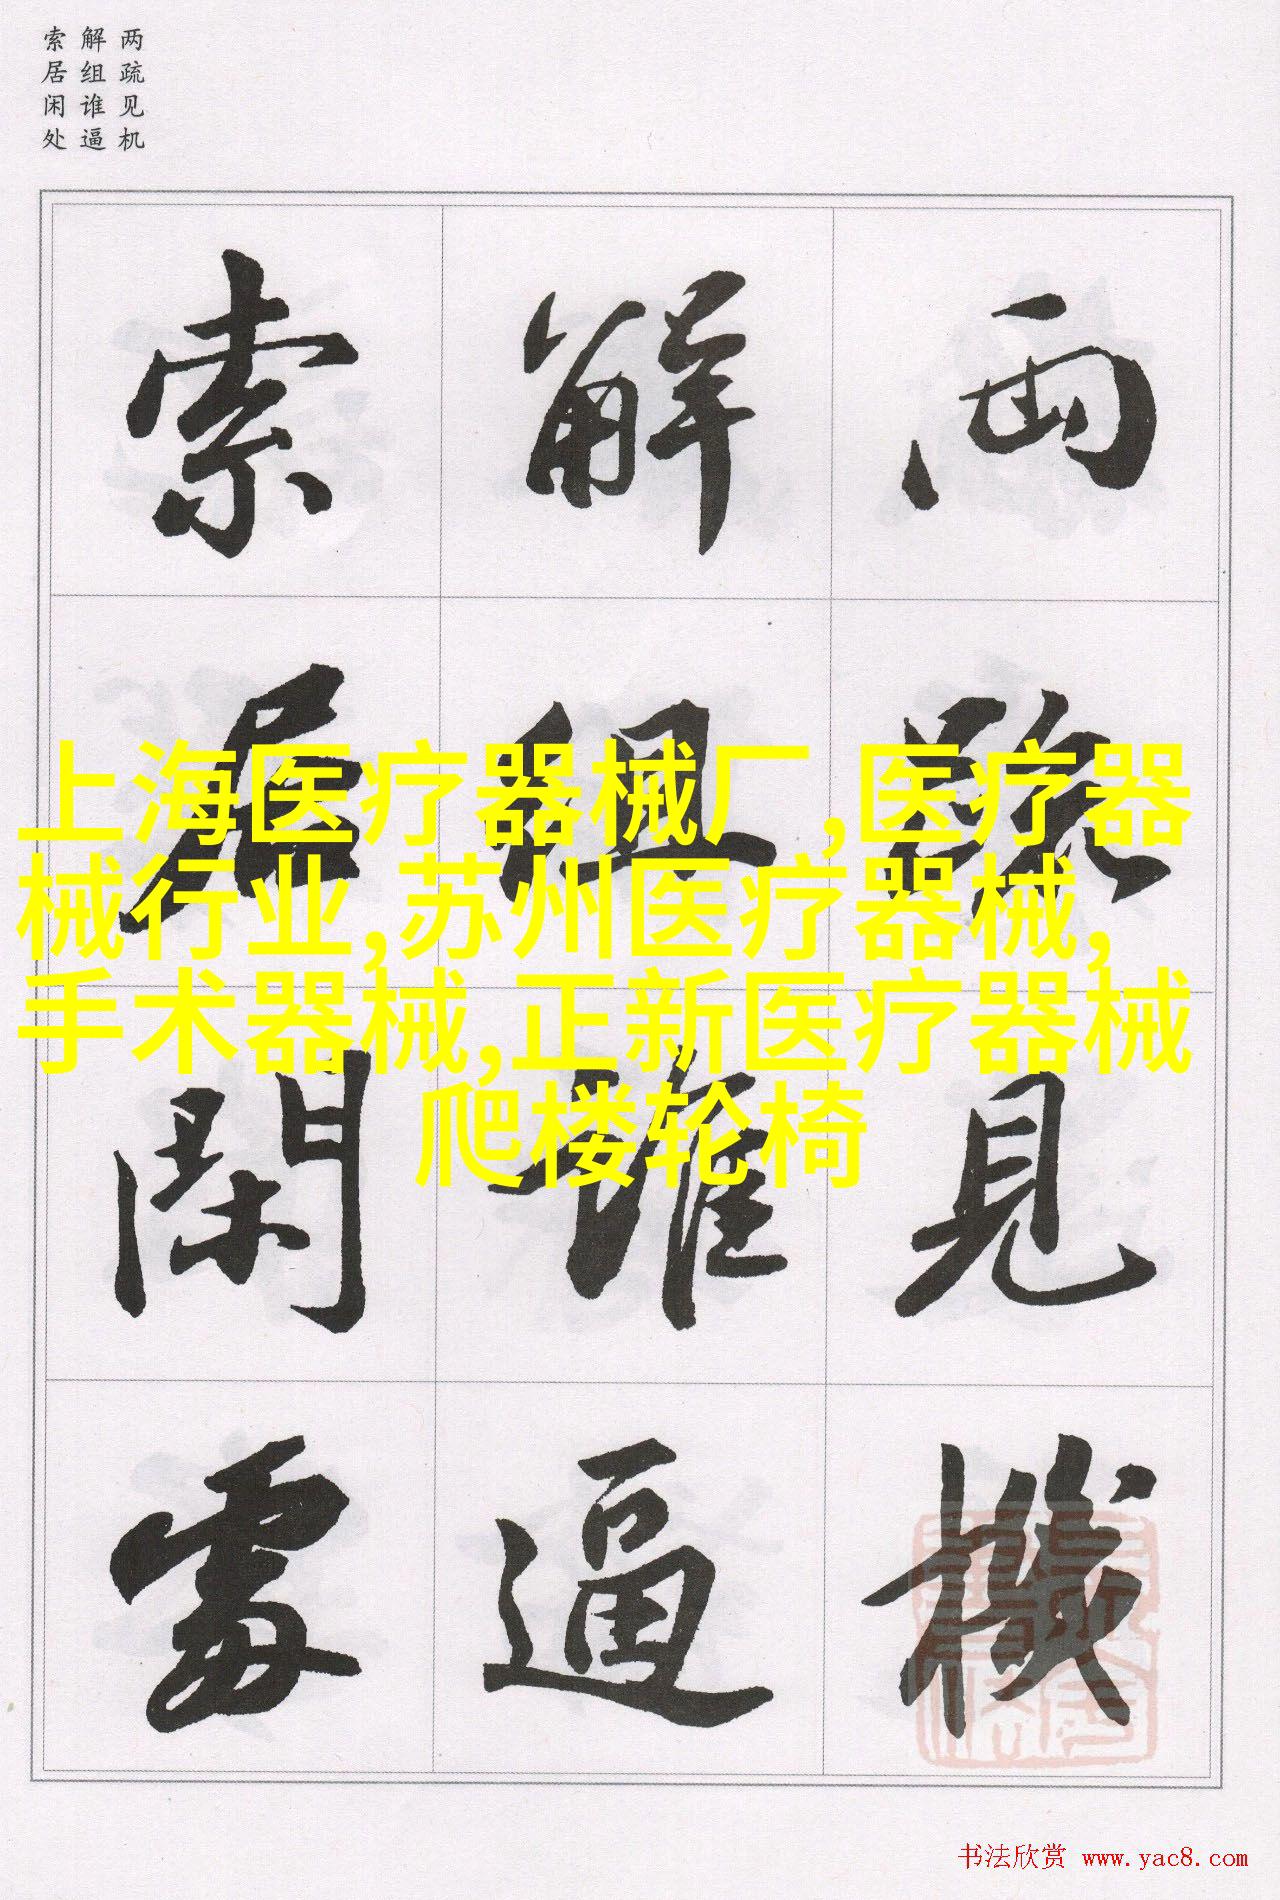 两疏见机
解组谁逼
索居闲处
兩疏見機
解組誰逼
索居閑處
上海医疗器械厂,医疗器
械行业,苏州医疗器械,
手术器械,正新医疗器械
爬楼轮椅
书法欣赏 www.yac8.com